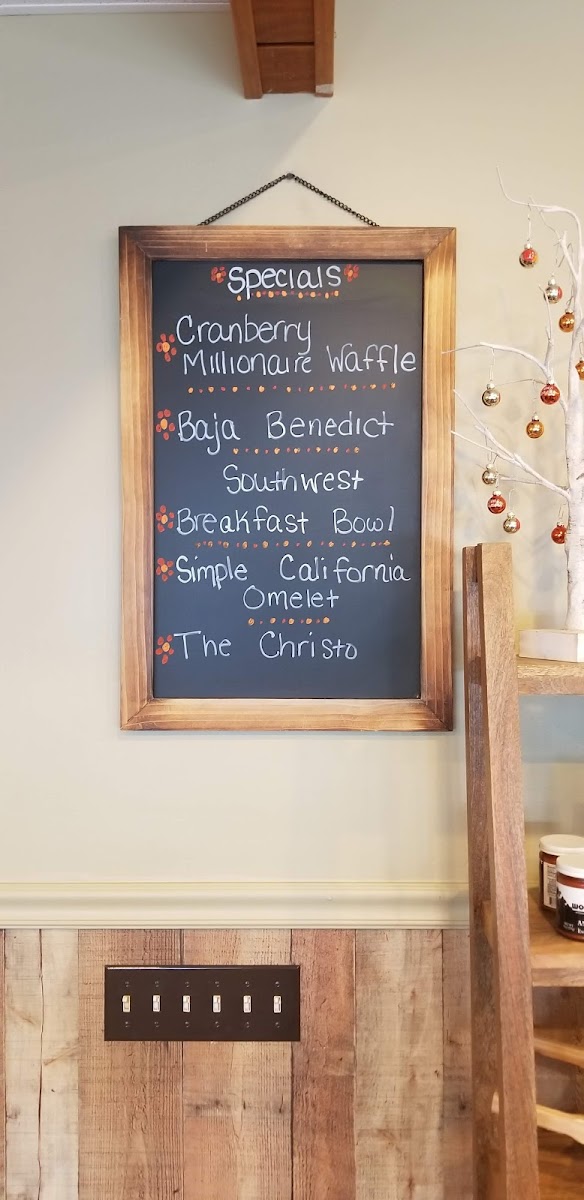 Specials
Cranberry
Millionaire Waffle
Baja Benedict
Southwest
Breakfast Bowl
Simple California
Omelet
The Christo